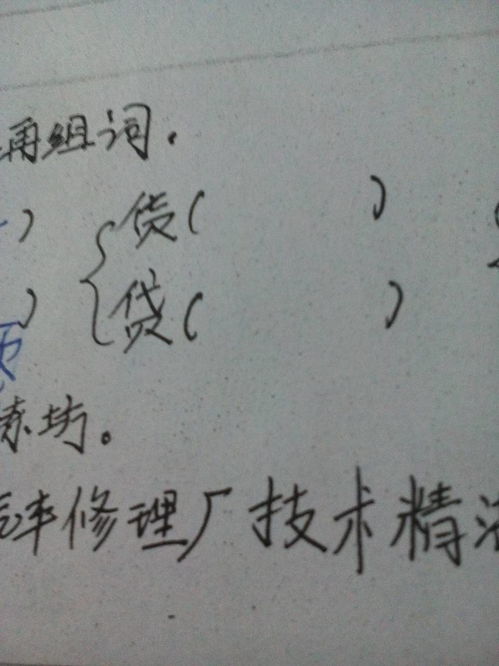 再组词.
) 货( )
) 贷( )
练坊。
汽车修理厂技术精